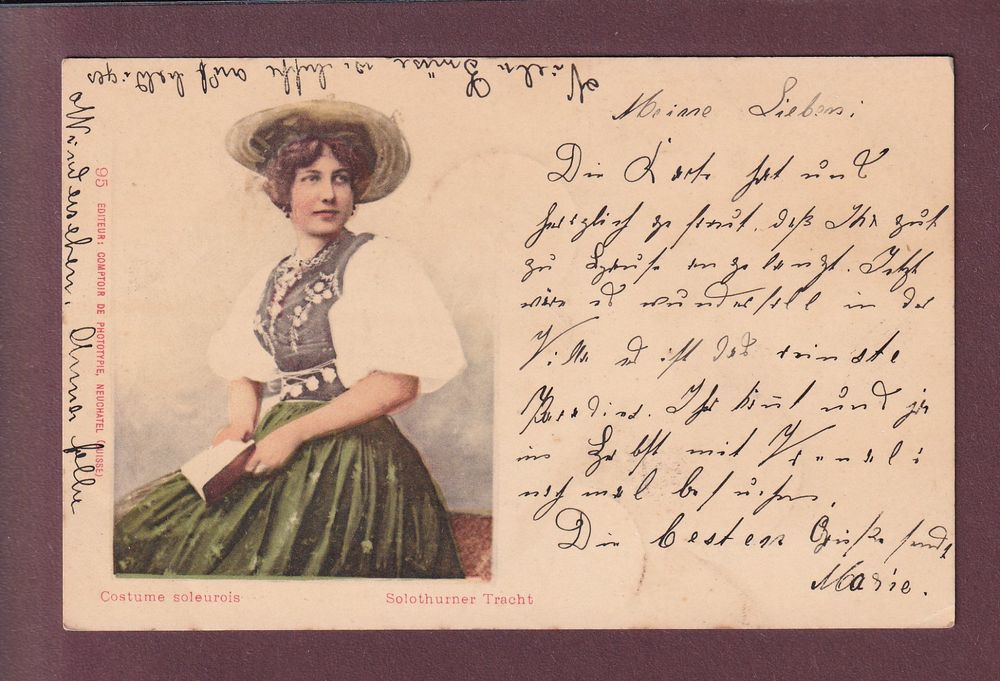 Meine Lieben!
Die Karte hat uns
herzlich gefreut, daß Ihr gut
zu Hause angelangt. Jetzt
wäre es wundervoll in der
Villa es ist das reinste
Paradies. Ihr könnt uns ja
im Herbst mit Vreneli
noch mal besuchen.
Die besten Grüße sendet
Marie.
Viele Grüße u. hoffe auf baldiges
Wiedersehen.
95 EDITEUR: COMPTOIR DE PHOTOTYPIE, NEUCHATEL (SUISSE)
Costume soleurois
Solothurner Tracht